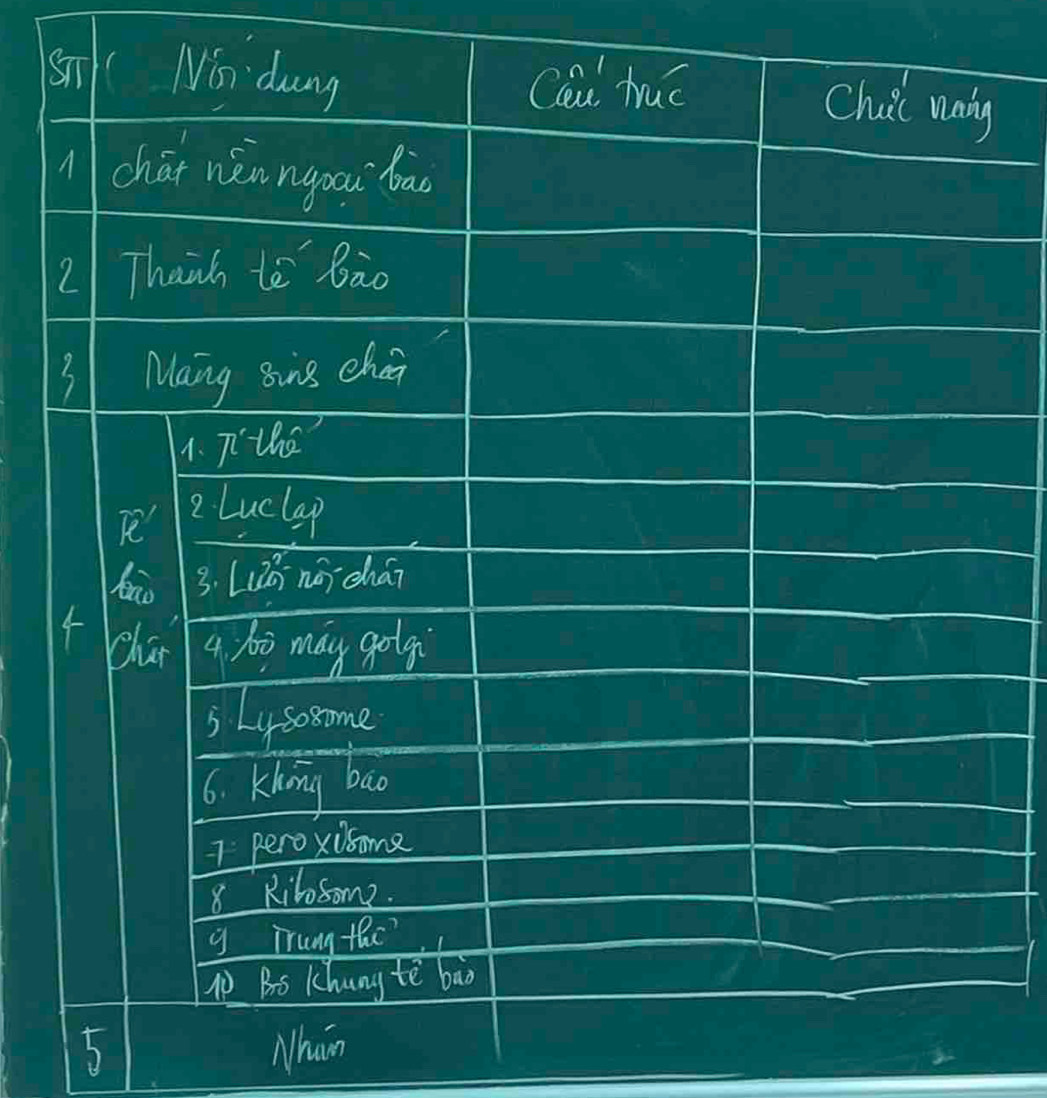 STT Nội dung Cấu trúc Chức năng
1 chất nền ngoại bào
2 Thành tế bào
3 Màng sinh chất
4 Tế bào chất
1. Ti thể
2. Lục lạp
3. Lưới nội chất
4. bộ máy golgi
5. Lysosome
6. Không bào
7. peroxisome
8 Ribosome.
9 Trung thể
10 Bộ khung tế bào
5 Nhân